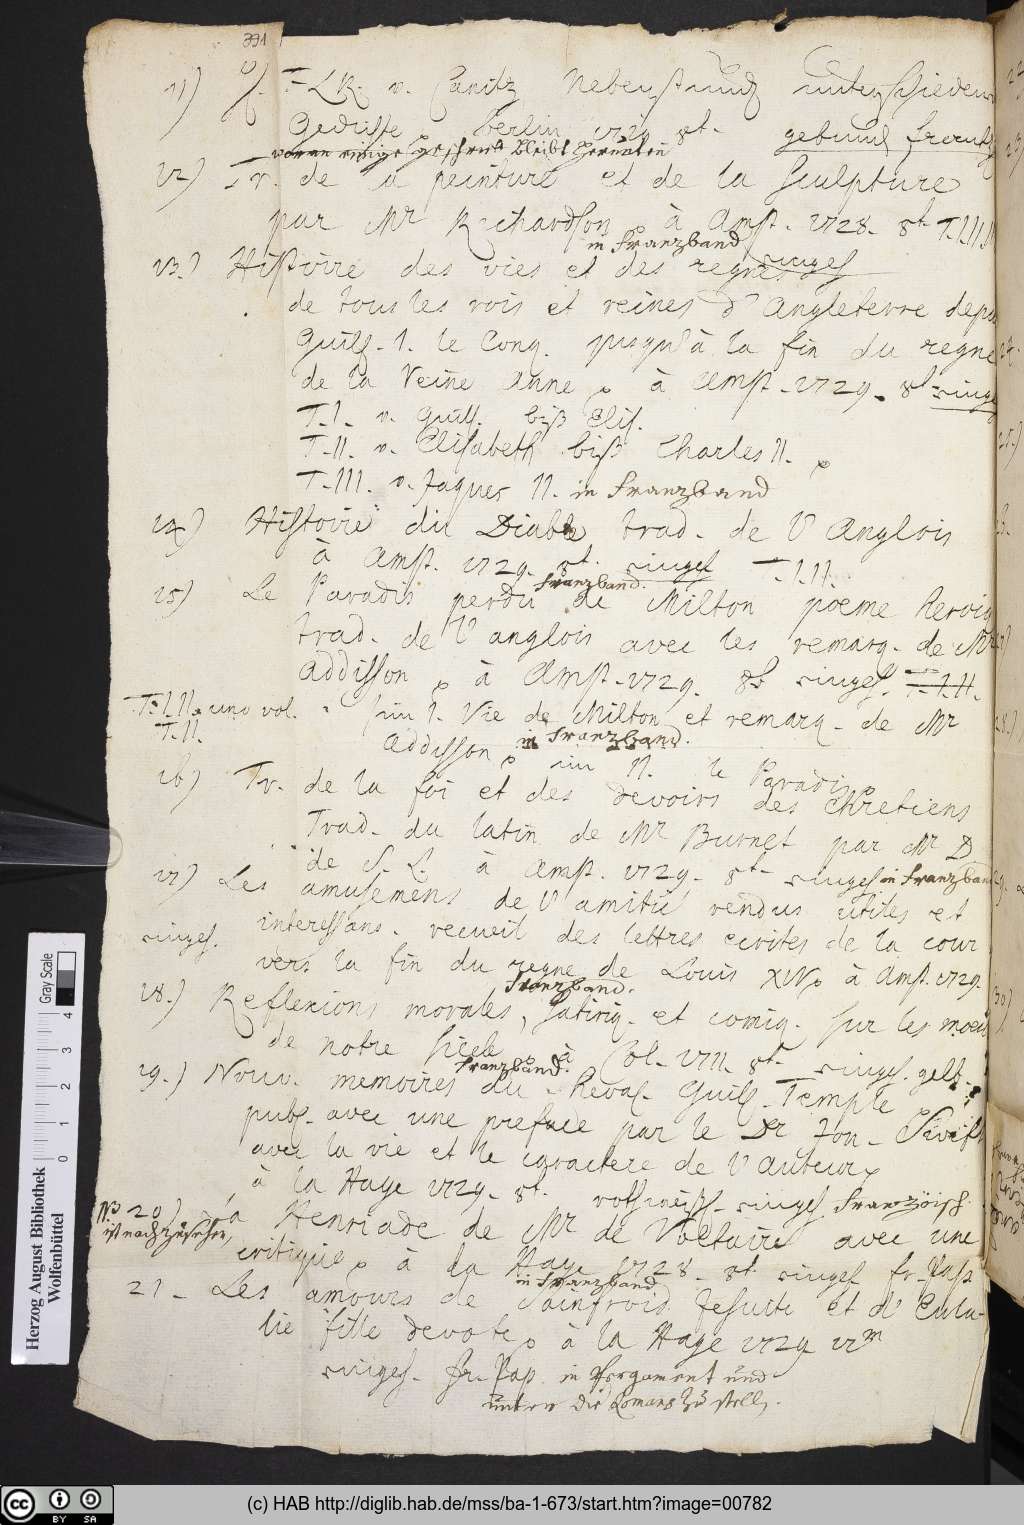 391
11) v. Canitz Neben Stund unterschiedene
Gedichte berlin 1729 8t. gebund frantz
12) Tr. de la peinture et de la sculpture
par Mr Richardson à Amst. 1728. 8t T.I.II.
in Franzband
13.) Histoire des vies et des regnes unges
de tous les rois et reines d'Angleterre depuis
Guill. I. le Conq. jusqu'à la fin du regne
de la Reine Anne, à Amst. 1729. 8t. unge
T.I. v. Guill. biß Elis.
T.II. v. Elisabeth biß Charles II.
T.III. v. Jaques II. in Franzband
14) Histoire du Diable trad. de l'Anglois
à Amst. 1729. 8t. unges T.I.II.
Franzband.
15) Le Paradis perdu de Milton poeme heroiq
trad. de l'anglois avec les remarq. de Mr
Addisson, à Amst. 1729. 8t unges. T.I.II.
T.I.II. uno vol. im I. Vie de Milton et remarq. de Mr
T.II. Addisson, in Franzband.
im II. le Paradis
16) Tr. de la foi et des devoirs des Chretiens
Trad. du latin de Mr Burnet par Mr D
de S. L. à Amst. 1729. 8t. unges in Franzband
17) Les amusemens de l'amitié rendus utiles et
unges. interessans. recueil des lettres ecrites de la cour
vers la fin du regne de Louis XIV, à Amst. 1729.
Franzband.
18.) Reflexions morales, satiriq. et comiq. sur les moeurs
de notre siecle, à Col. 1711. 8t. unges. geht.
Franzband.
19.) Nouv. memoires du Cheval. Guill. Temple
publ. avec une preface par le Dr Jon. Swift
avec la vie et le caractere de l'auteur,
à la Haye 1729. 8t. unges. Französisch.
No 20) la Henriade de Mr de Voltaire avec une
ist nachzusehen,
critique, à la Haye 1728. 8t unges fr. Pap
in Franzband
21. Les amours de Sainfroid Jesuite et d'Eula-
lie fille devote, à la Haye 1729 12m
unges. fr. Pap. in Pergament und
unter die Romans zu stell.
Gray Scale
0 1 2 3 4
Herzog August Bibliothek
Wolfenbüttel
CC BY SA
(c) HAB http://diglib.hab.de/mss/ba-1-673/start.htm?image=00782